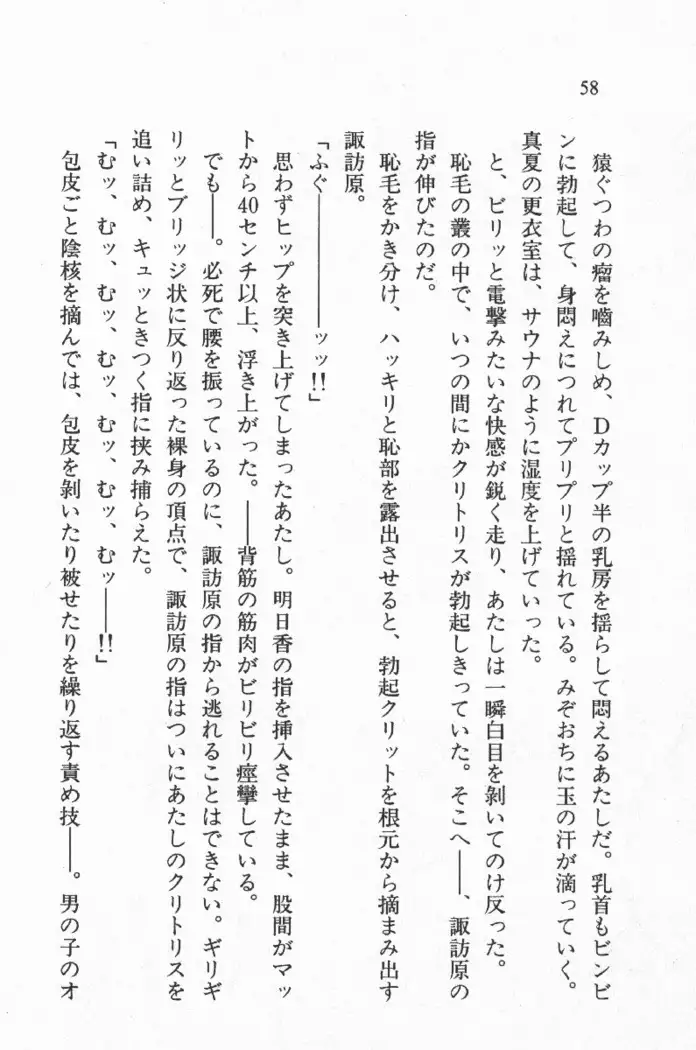 58
猿ぐつわの瘤を嚙みしめ、Dカップ半の乳房を揺らして悶えるあたしだ。乳首もビンビ
ンに勃起して、身悶えにつれてプリプリと揺れている。みぞおちに玉の汗が滴っていく。
真夏の更衣室は、サウナのように湿度を上げていった。
と、ビリッと電撃みたいな快感が鋭く走り、あたしは一瞬白目を剝いてのけ反った。
恥毛の叢の中で、いつの間にかクリトリスが勃起しきっていた。そこへ――、諏訪原の
指が伸びたのだ。
恥毛をかき分け、ハッキリと恥部を露出させると、勃起クリットを根元から摘まみ出す
諏訪原。
「ふぐ――――――ッッ!!」
思わずヒップを突き上げてしまったあたし。明日香の指を挿入させたまま、股間がマッ
トから40センチ以上、浮き上がった。――背筋の筋肉がビリビリ痙攣している。
でも――。必死で腰を振っているのに、諏訪原の指から逃れることはできない。ギリギ
リッとブリッジ状に反り返った裸身の頂点で、諏訪原の指はついにあたしのクリトリスを
追い詰め、キュッときつく指に挟み捕らえた。
「むッ、むッ、むッ、むッ、むッ、むッ――!!」
包皮ごと陰核を摘んでは、包皮を剝いたり被せたりを繰り返す責め技――。男の子のオ